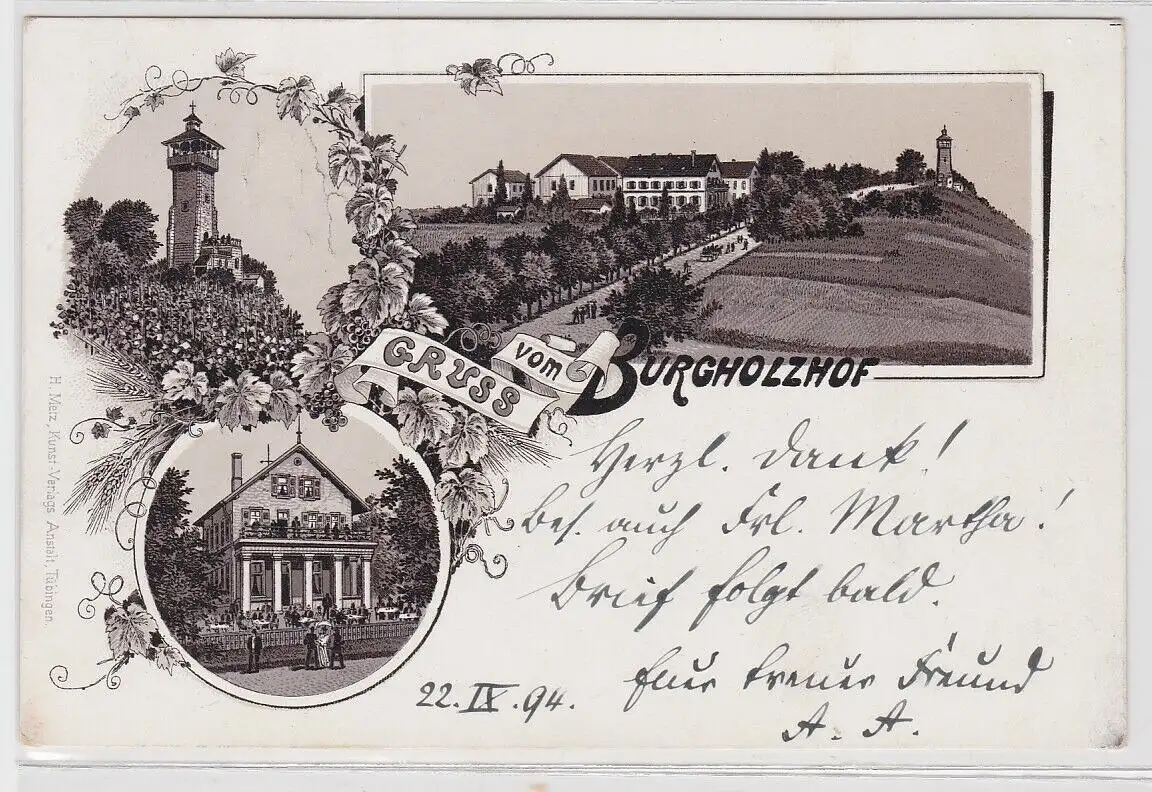 GRUSS
vom
BURGHOLZHOF
Herzl. Dank!
Bes. auch Frl. Martha!
Brief folgt bald.
Euer treuer Freund
A. A.
22. IX. 94.
H. Metz, Kunst-Verlags Anstalt, Tübingen.